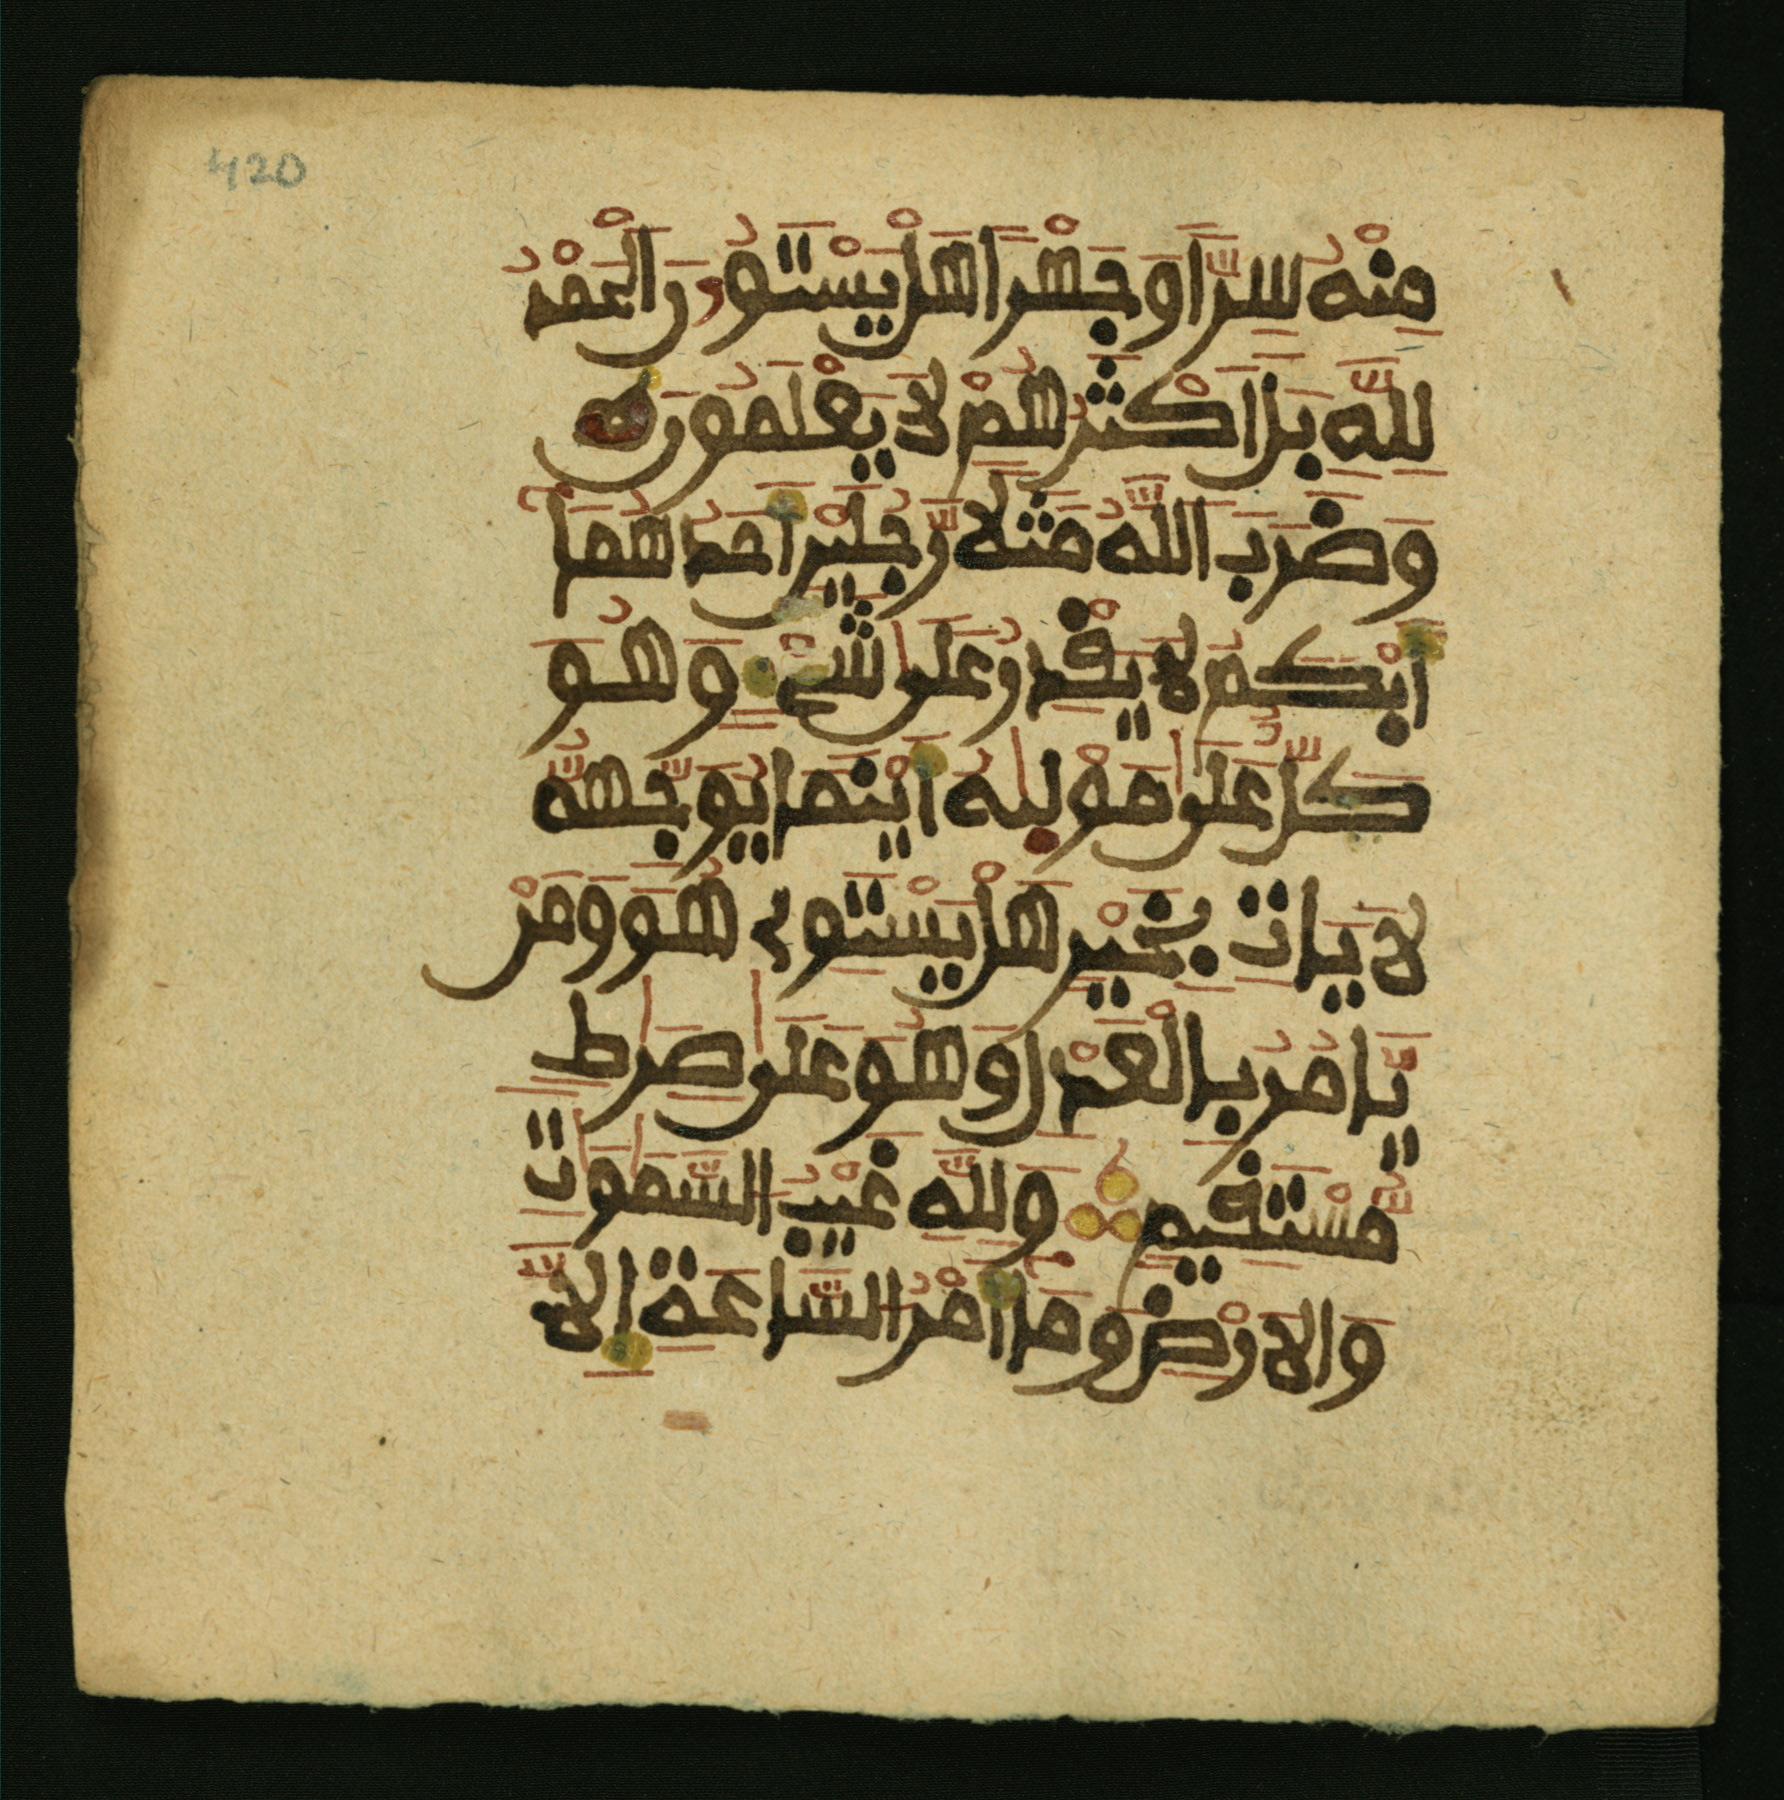 420
مِنْهُ سِرًّا وَجَهْرًا هَلْ يَسْتَوُۥنَ الْحَمْدُ
لِلَّهِ بَلْ اَكْثَرُهُمْ لَا يَعْلَمُونَ
وَضَرَبَ اللَّهُ مَثَلًا رَّجُلَيْنِ أَحَدُهُمَآ
أَبْكَمُ لَا يَقْدِرُ عَلَىٰ شَىْءٍ وَهُوَ
كَلٌّ عَلَىٰ مَوْلَىٰهُ أَيْنَمَا يُوَجِّههُّ
لَا يَاتِ بِخَيْرٍ هَلْ يَسْتَوِے هُوَ وَمَنْ
يَّامُرُ بِالْعَدْلِ وَهُوَ عَلَىٰ صِرَٰطٍ
مُّسْتَقِيمٍ وَلِلَّهِ غَيْبُ السَّمَٰوَٰتِ
وَالَارْضِ وَمَآ أَمْرُ السَّاعَةِ إِلَّا